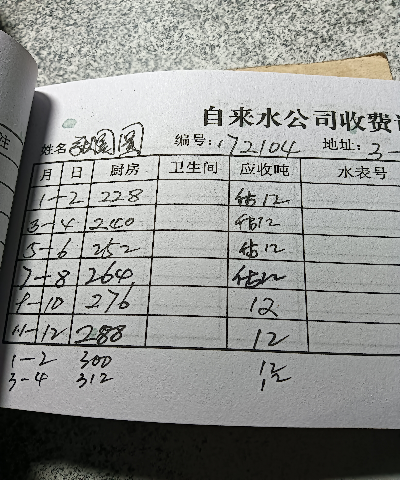 自来水公司收费
姓名 编号:172104 地址:3-
注
月 日 厨房 卫生间 应收吨 水表号
1-2 228 估12
3-4 240 估12
5-6 252 估12
7-8 264 估12
9-10 276 12
11-12 288 12
1-2 300 12
3-4 312 12